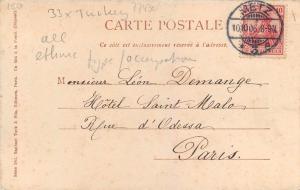 150
33x Turkey
all
ethnic
type/occupation
CARTE POSTALE
Ce côté est exclusivement réservé à l'adresse.
METZ
10.10.05. 8-9V.
Monsieur Léon Demange
Hôtel Saint Malo
Rue d'Odessa
Paris.